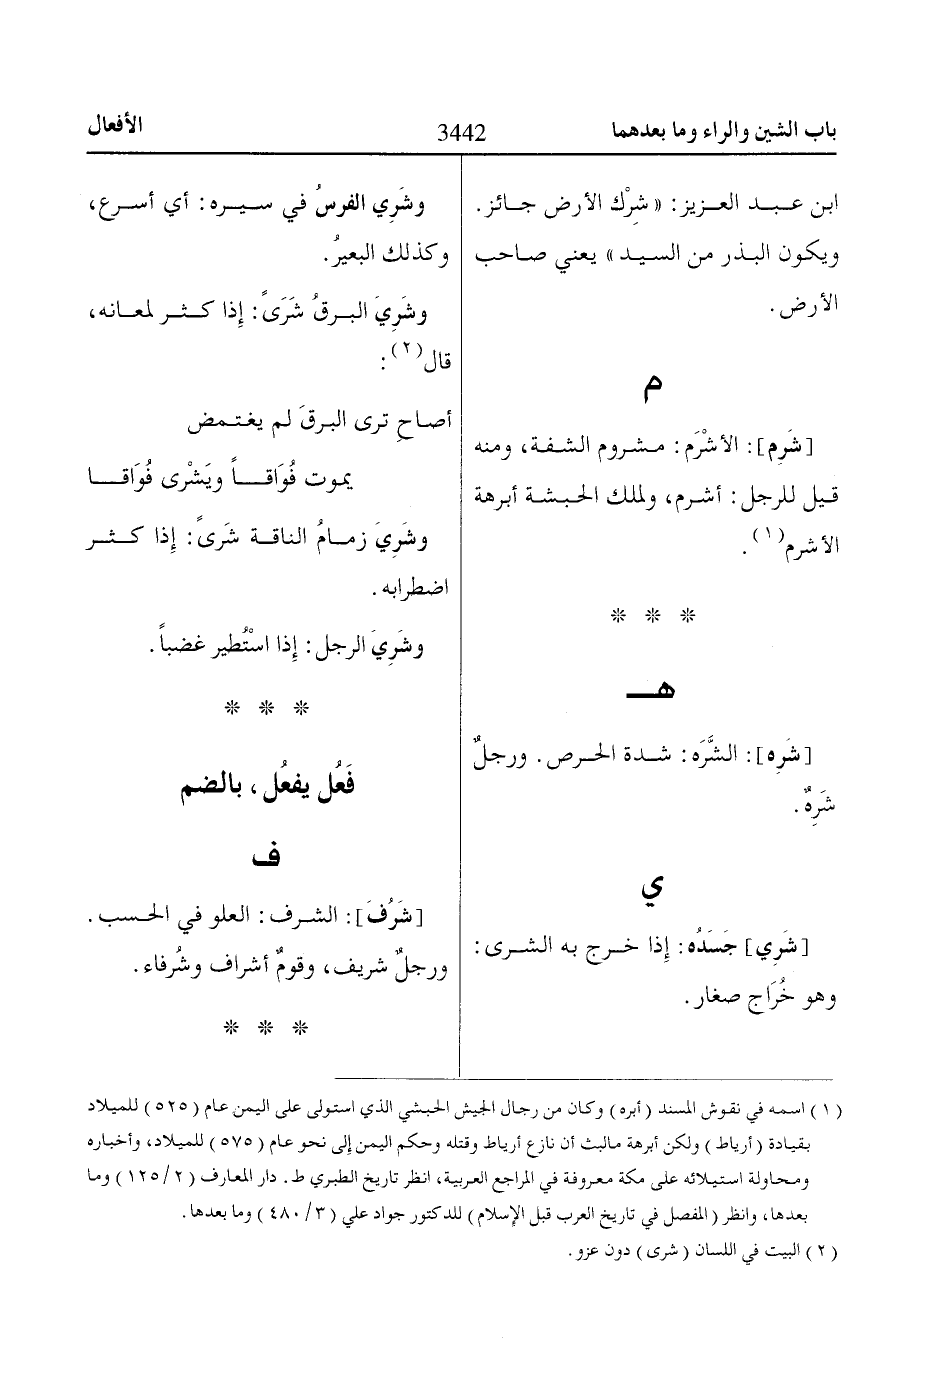 باب الشين والراء وما بعدهما
3442
الأفعال
ابن عبد العزيز: «شرْك الأرض جائز.
ويكون البذر من السيد» يعني صاحب
الأرض.
م
[شَرِم]: الأشْرَم: مشروم الشفة، ومنه
قيل للرجل: أشرم، ولملك الحبشة أبرهة
الأشرم(١).
* * *
هـ
[شَرِه]: الشَّرَه: شدة الحرص. ورجلٌ
شَرِهٌ.
ي
[شَرِي] جَسَدُه: إذا خرج به الشرى:
وهو خُرَاج صغار.
وشَرِي الفرسُ في سيره: أي أسرع،
وكذلك البعيرُ.
وشَرِيَ البرقُ شَرَىً: إذا كثر لمعانه،
قال(٢):
أصاحِ ترى البرقَ لم يغتمض
يموت فُوَاقاً ويَشْرى فُوَاقا
وشَرِيَ زمامُ الناقة شَرىً: إذا كثر
اضطرابه.
وشَرِيَ الرجل: إذا اسْتُطير غضباً.
* * *
فَعُل يفعُل، بالضم
ف
[شَرُفَ]: الشرف: العلو في الحسب.
ورجلٌ شريف، وقومٌ أشراف وشُرفاء.
* * *
(١) اسمه في نقوش المسند (أبره) وكان من رجال الجيش الحبشي الذي استولى على اليمن عام (٥٢٥) للميلاد
بقيادة (أرياط) ولكن أبرهة مالبث أن نازع أرياط وقتله وحكم اليمن إلى نحو عام (٥٧٥) للميلاد، وأخباره
ومحاولة استيلائه على مكة معروفة في المراجع العربية، انظر تاريخ الطبري ط. دار المعارف (١٢٥/٢) وما
بعدها، وانظر (المفصل في تاريخ العرب قبل الإسلام) للدكتور جواد علي (٤٨٠/٣) وما بعدها.
(٢) البيت في اللسان (شرى) دون عزو.